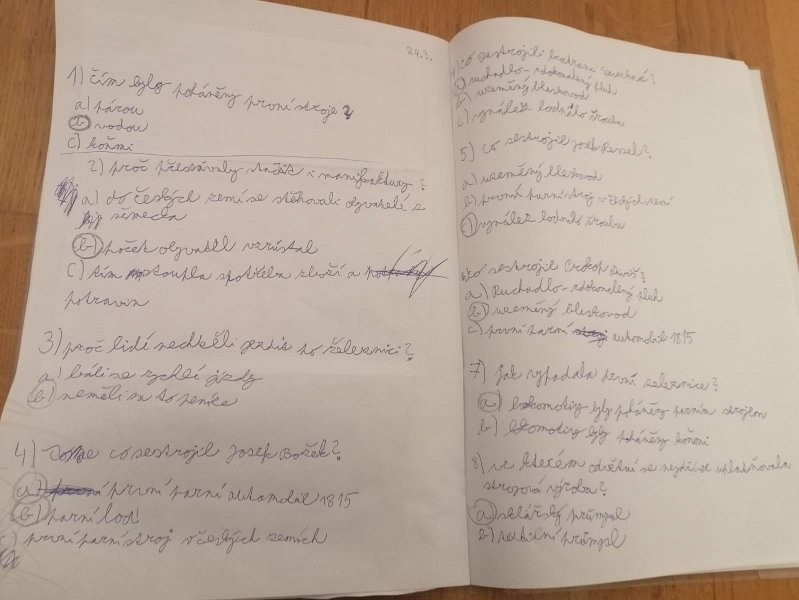 24.3.
1) čím byly poháněny první stroje?
a) párou
b) vodou
c) koňmi
2) proč přestávaly stačit i manifaktury?
a) do českých zemí se stěhovali obyvatelé z
německa
b) počet obyvatel vzrůstal
c) tím stoupla spotřeba zboží a
potravin
3) proč lidé nechtěli jezdit po železnici?
a) báli se rychlé jízdy
b) neměli na to peníze
4) co sestrojil Josef Božek?
a) první parní automobil 1815
b) parní loď
c) první parní stroj v českých zemích
co sestrojili bratranci
a) ruchadlo - zdokonalený pluh
b) uzeměný bleskovod
c) vynález lodního šroubu
5) co sestrojil Josef Ressel?
a) uzeměný bleskovod
b) první parní stroj v českých zemí
c) vynález lodního šroubu
co sestrojil Prokop Diviš?
a) Ruchadlo - zdokonalený pluh
b) uzeměný bleskovod
c) první parní automobil 1815
7) Jak vypadala první železnice?
a) lokomotivy byly poháněny parním strojem
b) lokomotivy byly poháněny koňmi
8) ve kterém odvětví se nejdříve uplatňovala
strojová výroba?
a) sklářský průmysl
b) textilní průmysl